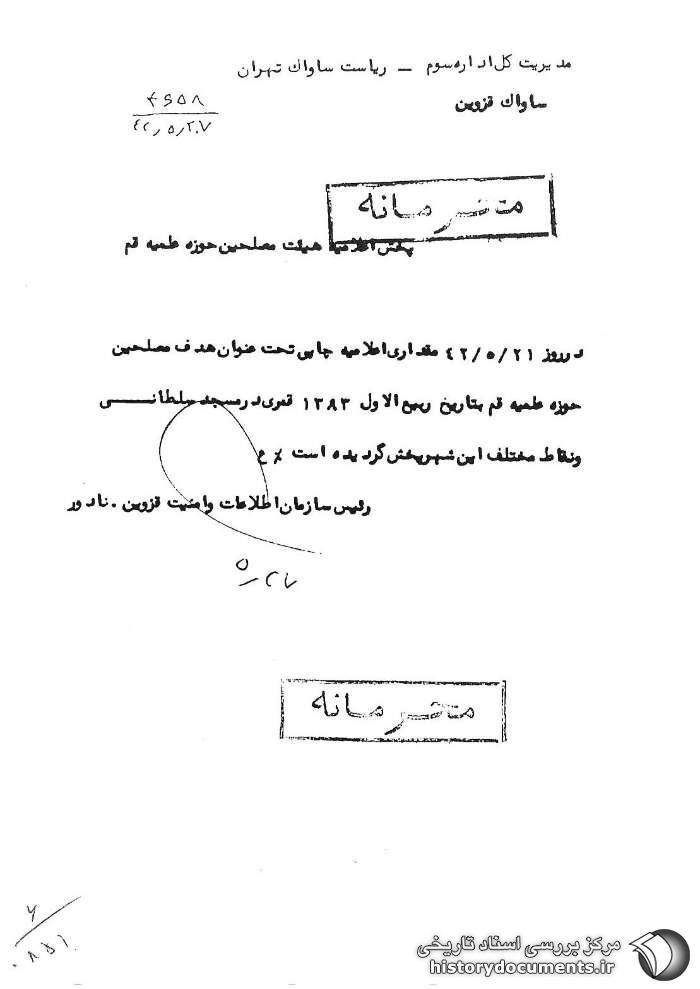 مدیریت کل اداره سوم – ریاست ساواک تهران
ساواک قزوین
۴۶۵۸
۴۲٫۵٫۲۷
محرمانه
پخش اعلامیه هیئت مصلحین حوزه علمیه قم
در روز ۴۲/۵/۲۱ مقداری اعلامیه چاپی تحت عنوان هدف مصلحین
حوزه علمیه قم بتاریخ ربیع الاول ۱۳۸۳ قمری در مسجد سلطانی
و نقاط مختلف این شهر پخش گردیده است ٪ ع
رئیس سازمان اطلاعات و امنیت قزوین . نادور
۵ر۲۷
محرمانه
مرکز بررسی اسناد تاریخی
historydocuments.ir